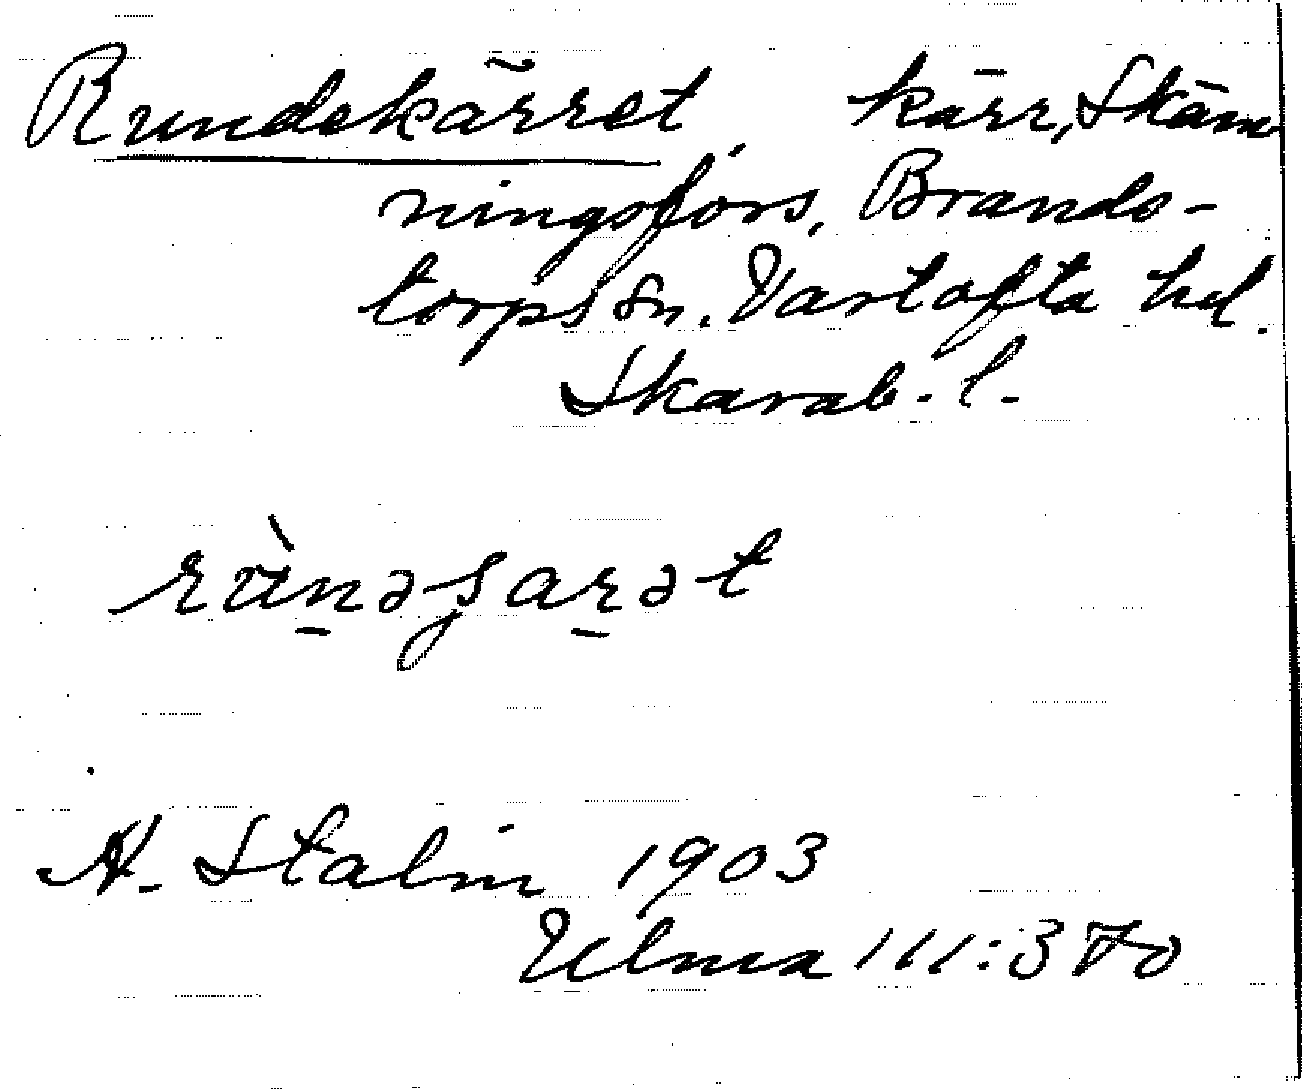 Rundekärret kärr, Skäm
ningsfors, Brands-
torps sn. Vartofta hd.
Skarab. l.
rùn̲əʂar̲ət
A. Stalin 1903
Ulma 111:370